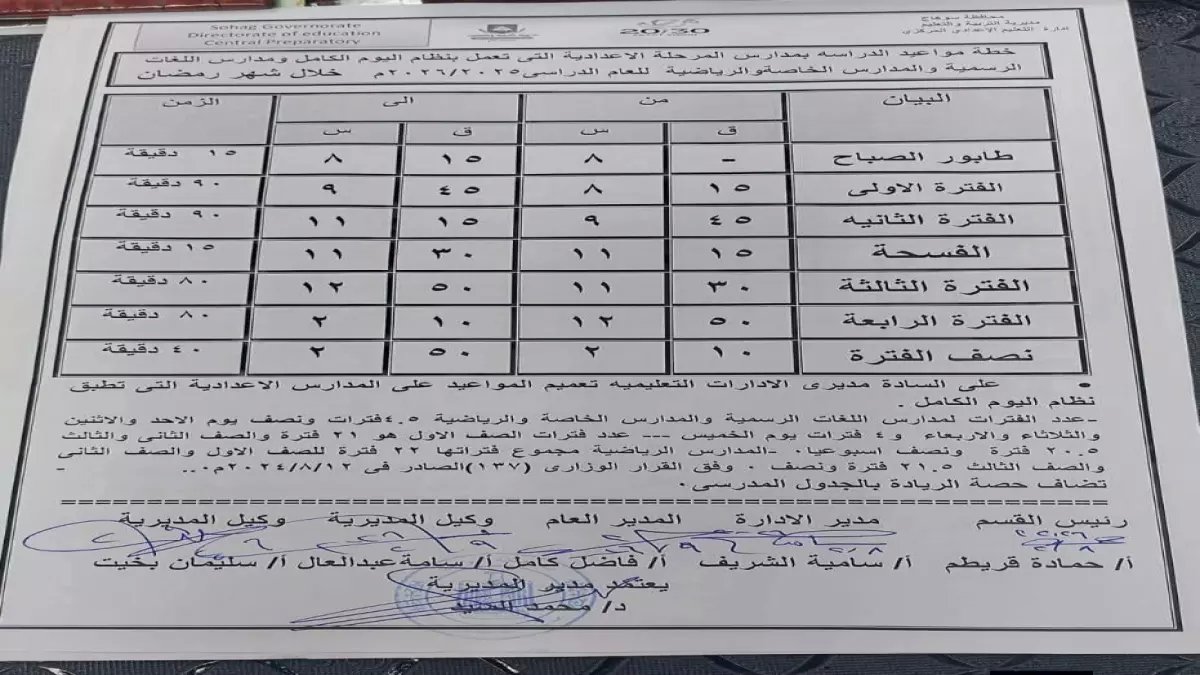 محافظة سوهاج
مديرية التربية والتعليم
إدارة التعليم الإعدادى المركزى
20/30
Sohag Governorate
Directorate of education
Central Preparatory
خطة مواعيد الدراسه بمدارس المرحلة الاعدادية التى تعمل بنظام اليوم الكامل ومدارس اللغات
الرسمية والمدارس الخاصة والرياضية للعام الدراسى ٢٠٢٦/٢٠٢٥م خلال شهر رمضان
البيان من الى الزمن
ق س ق س
طابور الصباح - ٨ ١٥ ٨ ١٥ دقيقة
الفترة الاولى ١٥ ٨ ٤٥ ٩ ٩٠ دقيقة
الفترة الثانيه ٤٥ ٩ ١٥ ١١ ٩٠ دقيقة
الفسحة ١٥ ١١ ٣٠ ١١ ١٥ دقيقة
الفترة الثالثة ٣٠ ١١ ٥٠ ١٢ ٨٠ دقيقة
الفترة الرابعة ٥٠ ١٢ ١٠ ٢ ٨٠ دقيقة
نصف الفترة ١٠ ٢ ٥٠ ٢ ٤٠ دقيقة
• على السادة مديرى الادارات التعليميه تعميم المواعيد على المدارس الاعدادية التى تطبق
نظام اليوم الكامل .
-عدد الفترات لمدارس اللغات الرسمية والمدارس الخاصة والرياضية ٤.٥فترات ونصف يوم الاحد والاثنين
والثلاثاء والاربعاء و٤ فترات يوم الخميس --- عدد فترات الصف الاول هو ٢١ فترة والصف الثانى والثالث
٢٠.٥ فترة ونصف اسبوعيا٠ -المدارس الرياضية مجموع فتراتها ٢٢ فترة للصف الاول والصف الثانى
والصف الثالث ٢١.٥ فترة ونصف ٠ وفق القرار الوزارى (١٣٧)الصادر فى ٢٠٢٤/٨/١٢م... -
تضاف حصة الريادة بالجدول المدرسى٠
رئيس القسم مدير الادارة المدير العام وكيل المديرية وكيل المديرية
أ/ حمادة قريطم أ/ سامية الشريف أ/ فاضل كامل أ/ سامة عبدالعال أ/ سليمان بخيت
يعتمد مدير المديرية
د/ محمد السيد